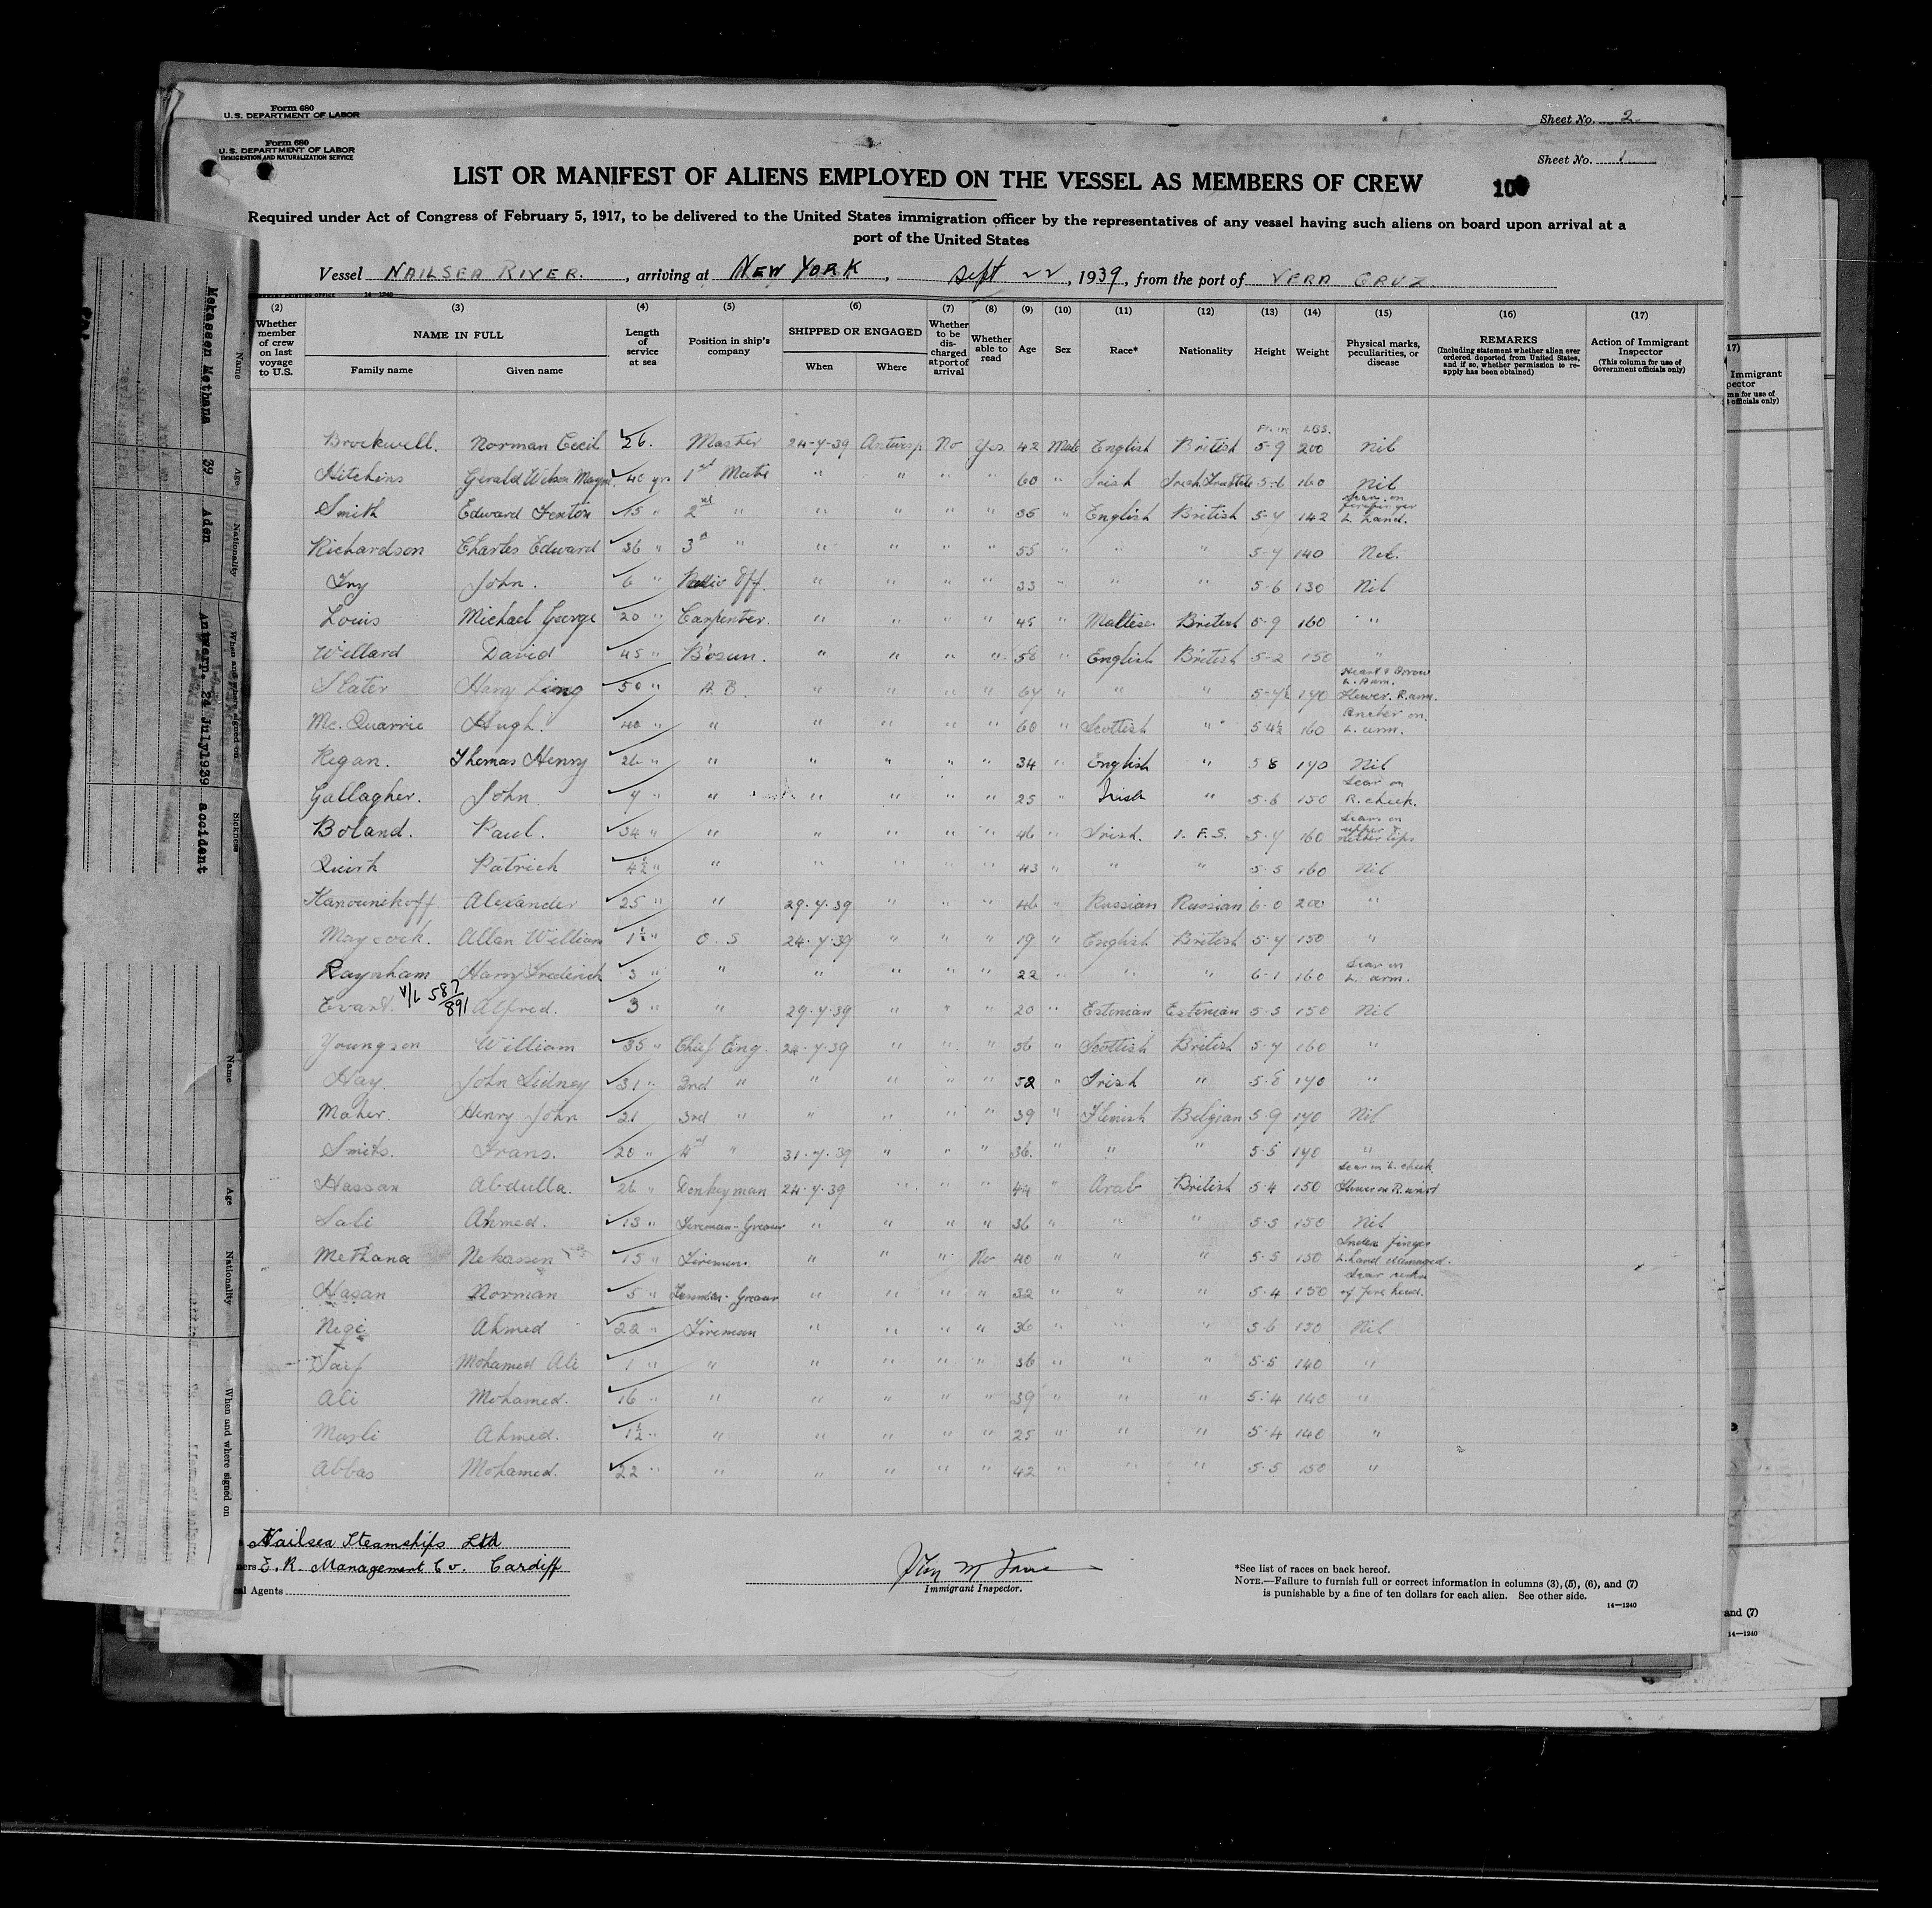 Form 680
U.S. DEPARTMENT OF LABOR
Sheet No. 2
Form 680
U.S. DEPARTMENT OF LABOR
IMMIGRATION AND NATURALIZATION SERVICE
Sheet No. 1
LIST OR MANIFEST OF ALIENS EMPLOYED ON THE VESSEL AS MEMBERS OF CREW
Required under Act of Congress of February 5, 1917, to be delivered to the United States immigration officer by the representatives of any vessel having such aliens on board upon arrival at a
port of the United States
Vessel NAILSEA RIVER, arriving at NEW YORK, Sept 22, 1939, from the port of VERA CRUZ.
14—1240
(2) (3) (4) (5) (6) (7) (8) (9) (10) (11) (12) (13) (14) (15) (16) (17)
Whether member of crew on last voyage to U.S.
NAME IN FULL
Family name Given name
Length of service at sea
Position in ship's company
SHIPPED OR ENGAGED
When Where
Whether to be discharged at port of arrival
Whether able to read
Age Sex Race* Nationality Height Weight
Physical marks, peculiarities, or disease
REMARKS
(Including statement whether alien ever ordered deported from United States, and if so, whether permission to reapply has been obtained)
Action of Immigrant Inspector
(This column for use of Government officials only)
LBS.
Brockwell. Norman Cecil 26. Master 24-7-39 Antwerp No Yes 42 Male English British 5-9 200 Nil
Hitchins Gerald 40 yrs 1st Mate " " " " 60 " Irish 5-6 160 Nil
Smith Edward Fenton 15 " 2nd " " " " " 35 " English British 5-7 142 Scar on forefinger L. hand.
Richardson Charles Edward 36 " 3rd " " " " " 55 " " " 5-7 140 Nil.
John. 6 " Radio Off. " " " " 33 " " " 5-6 130 Nil
Louis Michael George 20 " Carpenter. " " " " 45 " Maltese British 5-9 160 "
Willard David 45 " Bosun. " " " " 58 " English British 5-2 150 "
Slater Harry 50 " A.B. " " " " 67 " " " 5-7½ 170 Heart & Arrow L. Arm. Flower. R. arm.
Mc.Quarrie Hugh. 40 " " " " " " 60 " Scottish " 5 4½ 160 Anchor on. L. arm.
Regan. Thomas Henry 26 " " " " " " 34 " English " 5 8 170 Nil
Gallagher. John 7 " " " " " " 25 " Irish " 5-6 150 Scar on R. cheek.
Boland. Paul. 34 " " " " " " 46 " Irish. I.F.S. 5-7 160 Scars on upper & nether lips
Quirk Patrick 4½ " " " " " " 43 " " " 5-5 160 Nil
Kanounikoff Alexander 25 " " 29.7.39 " " " 46 " Russian Russian 6-0 200 "
Maycock. Allan William 1½ " O.S 24.7.39 " " " 19 " English British 5.7 150 "
Raynham Harry Frederick 3 " " " " " " 22 " " " 6-1 160 Scar on L. arm.
V/L 587/891
Evart. Alfred. 3 " " 29.7.39 " " " 20 " Estonian Estonian 5-5 150 Nil
Youngson William 35 " Chief Eng. 24.7.39 " " " 56 " Scottish British 5.7 160 "
Hay. John Sidney 31 " 2nd " " " " " 52 " Irish " 5.8 170 "
Maher. Henry John 21 3rd " " " " " 39 " Flemish Belgian 5.9 170 Nil
Smits. Frans. 20 " 4th " 31.7.39 " " " 36. " " " 5.5 170 "
Hassan Abdulla. 26 " Donkeyman 24.7.39 " " " 44 " Arab British 5.4 150 Scar on L. cheek. Flower on R. wrist
Sali Ahmed. 13 " Fireman-Greaser " " " " 36 " " " 5.5 150 Nil
Methana Nekassen 15 " Fireman. " " " No 40 " " " 5.5 150 Index finger L. hand damaged.
Hasan Norman 5 " Fireman-Greaser " " " " 32 " " " 5.4 150 Scar of fore head.
Negi Ahmed 22 " Fireman " " " " 36 " " " 5.6 150 Nil
Saif Mohamed Ali 1 " " " " " " 36 " " " 5.5 140 "
Ali Mohamed. 16 " " " " " " 39 " " " 5.4 140 "
Musli Ahmed. 1½ " " " " " " 25 " " " 5.4 140 "
Abbas Mohamed. 22 " " " " " " 42 " " " 5.5 150 "
Nailsea Steamships Ltd
E. R. Management Co. Cardiff
Agents
Immigrant Inspector.
*See list of races on back hereof.
NOTE.—Failure to furnish full or correct information in columns (3), (5), (6), and (7)
is punishable by a fine of ten dollars for each alien. See other side.
14—1240
Name Age Nationality When and where signed on Sickness
Nekassen Methana 39 Aden Antwerp. 24 July1939 accident
Name Age Nationality When and where signed on
17)
Immigrant
officials only)
and (7)
14—1240